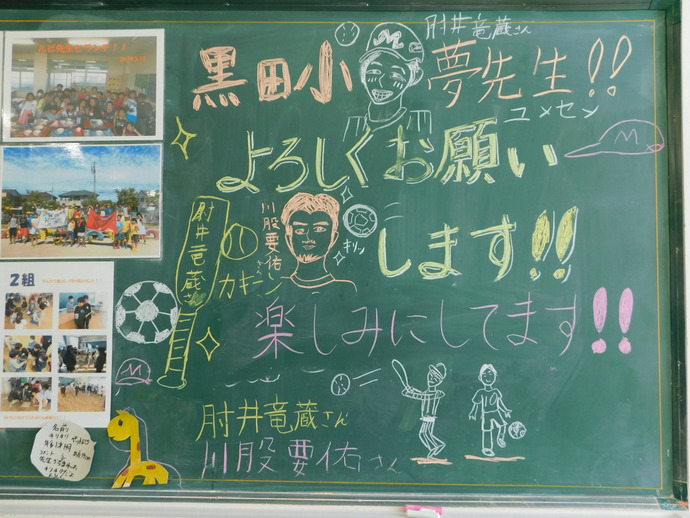 肘井竜蔵さん
黒田小
夢先生!!
ユメセン
よろしくお願い
します!!
川股要佑さん
肘井竜蔵さん
カキーン
キリッ
楽しみにしてます!!
肘井竜蔵さん
川股要佑さん
M
M
M
2組
名前